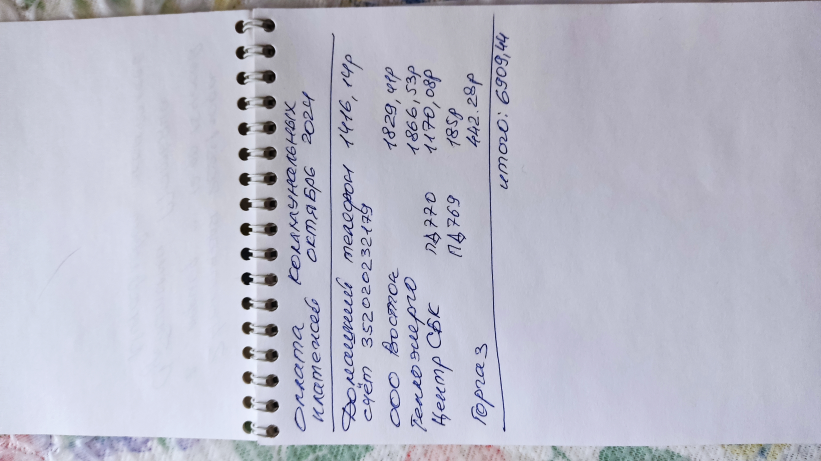 Оплата коммунальных
платежей октябрь 2024
Домашний телефон 1416,14р
счёт 352020232179
ООО Восток 1829,41р
Теплоэнерго 1866,53р
Центр СБК ПД770 1170,08р
ПД769 185р
Горгаз 442.28р
итого: 6909,44